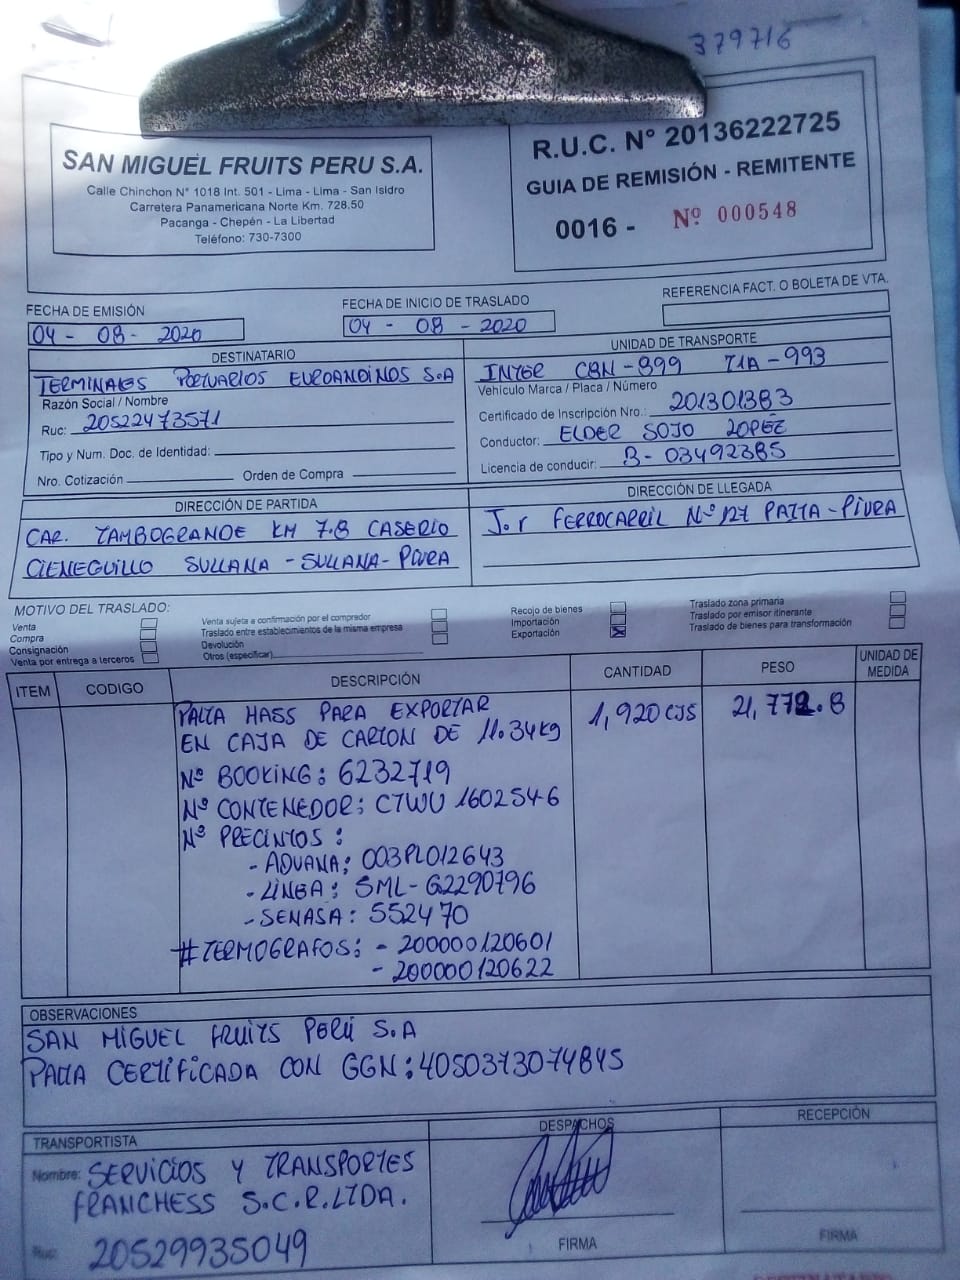 379716
SAN MIGUEL FRUITS PERU S.A.
Calle Chinchon N° 1018 Int. 501 - Lima - Lima - San Isidro
Carretera Panamericana Norte Km. 728.50
Pacanga - Chepén - La Libertad
Teléfono: 730-7300
R.U.C. N° 20136222725
GUIA DE REMISIÓN - REMITENTE
0016 - Nº 000548
FECHA DE EMISIÓN
04 - 08 - 2020
FECHA DE INICIO DE TRASLADO
04 - 08 - 2020
REFERENCIA FACT. O BOLETA DE VTA.
DESTINATARIO
TERMINALES PORTUARIOS EUROANDINOS S.A
Razón Social / Nombre
Ruc: 20522473571
Tipo y Num. Doc. de Identidad:
Nro. Cotización Orden de Compra
UNIDAD DE TRANSPORTE
INTER CBN-899 T1A-993
Vehículo Marca / Placa / Número
Certificado de Inscripción Nro.: 201301383
Conductor: ELDER SOJO LOPEZ
Licencia de conducir: B-03492385
DIRECCIÓN DE PARTIDA
CAR. TAMBOGRANDE KM 7.8 CASERIO
CIENEGUILLO SULLANA - SULLANA - PIURA
DIRECCIÓN DE LLEGADA
J.r FERROCARRIL Nº 127 PAITA - PIURA
MOTIVO DEL TRASLADO:
Venta
Compra
Consignación
Venta por entrega a terceros
Venta sujeta a confirmación por el comprador
Traslado entre establecimientos de la misma empresa
Devolución
Otros (especificar)
Recojo de bienes
Importación
Exportación X
Traslado zona primaria
Traslado por emisor itinerante
Traslado de bienes para transformación
ITEM CODIGO DESCRIPCIÓN CANTIDAD PESO UNIDAD DE MEDIDA
PALTA HASS PARA EXPORTAR 1,920 CJS 21,772.8
EN CAJA DE CARTON DE 11.34kg
Nº BOOKING: 6232719
Nº CONTENEDOR: CTWU 160254-6
Nº PRECINTOS:
- ADUANA: 003PL012643
- LINEA: SML-G2290796
- SENASA: 552470
# TERMOGRAFOS: - 200000120601
- 200000120622
OBSERVACIONES
SAN MIGUEL FRUITS PERÚ S.A
PALTA CERTIFICADA CON GGN: 4050373074845
TRANSPORTISTA
Nombre: SERVICIOS Y TRANSPORTES
FRANCHESS S.C.R.LTDA.
Ruc: 20529935049
DESPACHOS
FIRMA
RECEPCIÓN
FIRMA